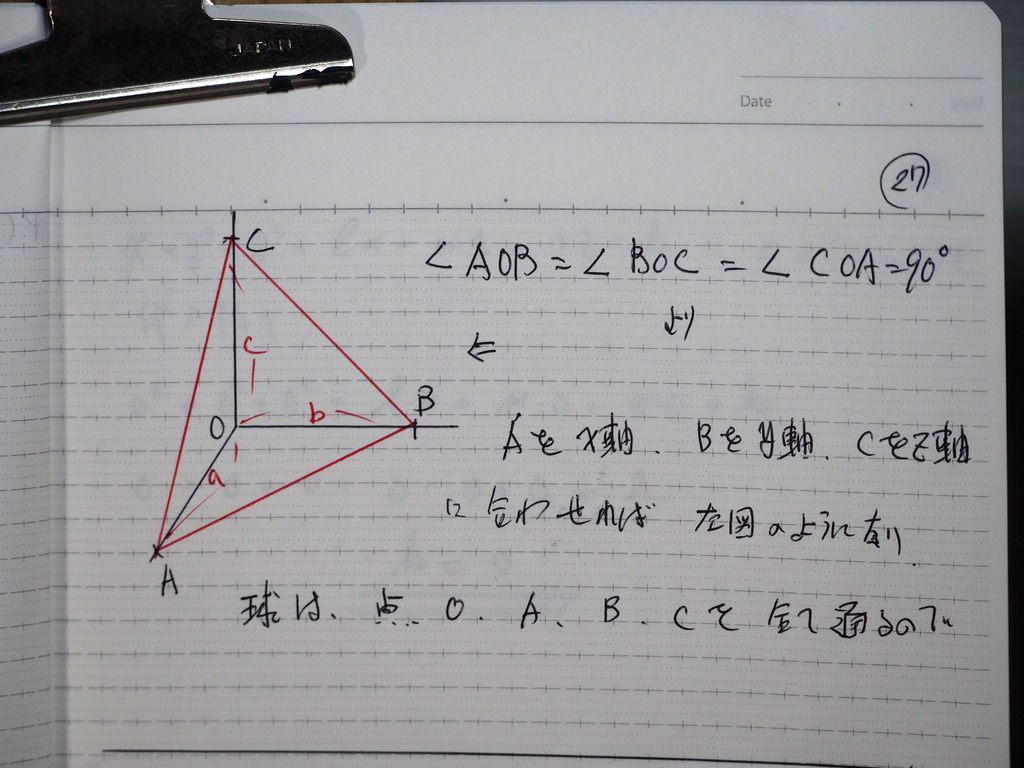 JAPAN
Date
27
C
∠AOB=∠BOC=∠COA=90°
より
c
⇐
B
O
b
Aをx軸、Bをy軸、Cをz軸
a
に合わせれば 左図のように有り
A
球は、点 O、A、B、Cを全て通るので